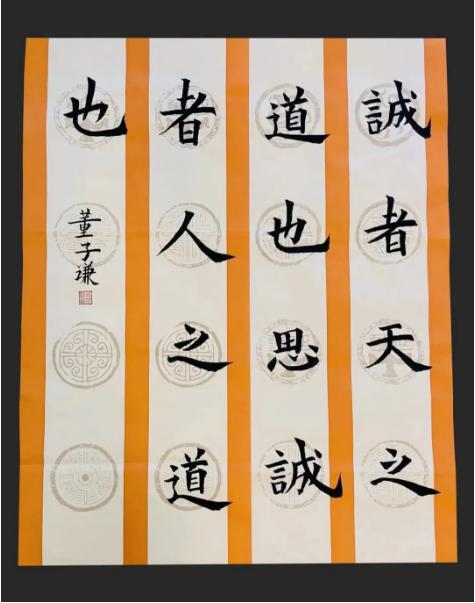 誠者天之
道也思誠
者人之道
也
董子谦